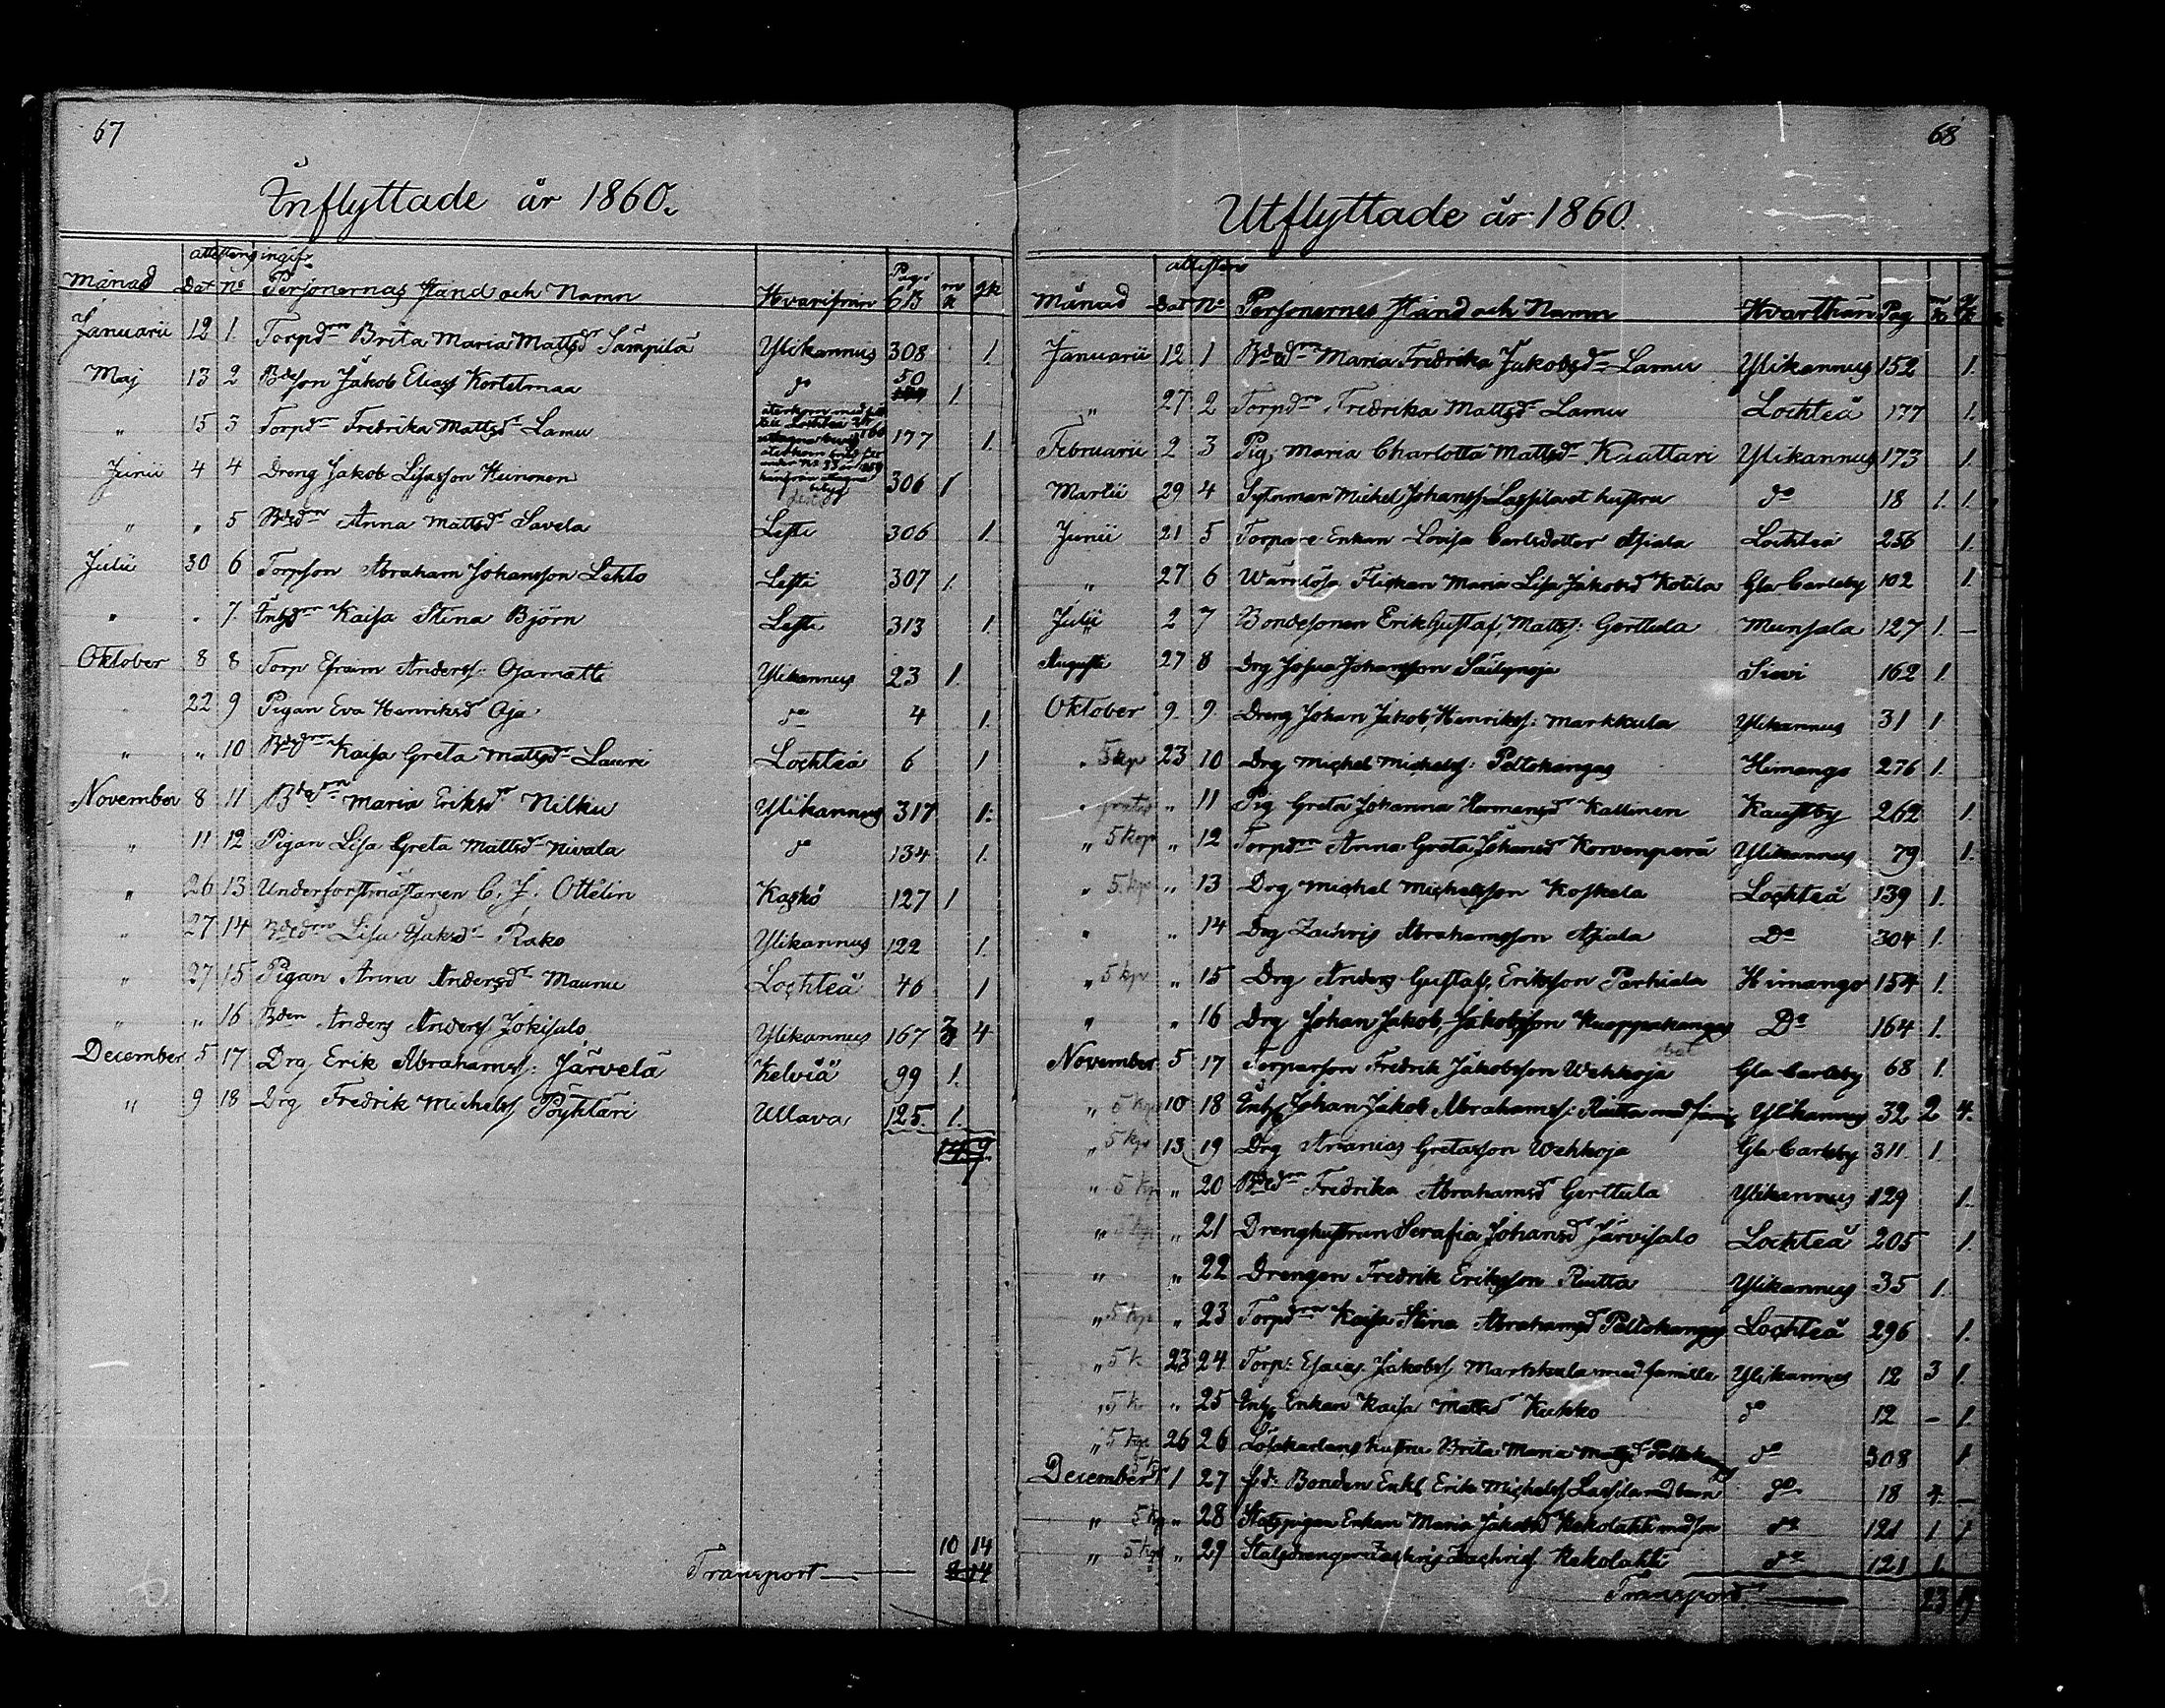 67
Inflyttade år 1860.
attestens ingifv.
Månad Dat No Personernas stånd och Namn Hvarifrån Pag. CB mk qk
Januarii 12 1. Torpdrn Brita Maria Mattsdr Sämpilä Ylikannus 308 1.
Maj 13 2 Bdeson Jakob Eliass Kortetmaa do 50 1.
" 15 3 Torpdr Fredrika Mattsdr Lamu 177 1.
Junii 4 4 Dreng Jakob Lisasson Huinonen 306 1
" " 5 Bdedrn Anna Mattsdr Savela Lesti 306 1.
Julii 30 6 Torpson Abraham Johansson Lehto Lesti 307 1.
" " 7. Inhdrn Kaisa Stina Björn Lesti 313 1.
Oktober 8 8 Torp Efraim Anderss: Ojamatti Ylikannus 23 1.
" 22 9 Pigan Eva Henriksdr Oja do 4 1.
" " 10 Bdedrn Kaisa Greta Mattsdr Lauri Lochteå 6 1
November 8 11 Bdedrn Maria Eriksdr Nilku Ylikannus 317 1.
" 11 12 Pigan Lisa Greta Mattsdr Nivala do 134 1.
" 26 13 Underforstmästaren C. J. Ottelin Kaskö 127 1
" 27 14 Bdedrn Lisa Isaksdr Rako Ylikannus 122 1.
" 27 15 Pigan Anna Andersdr Maunu Lochteå 46 1
" " 16 Bden Anders Anderss Jokisalo Ylikannus 167 3 4
December 5 17 Drg Erik Abrahamss: Järvelä Kelviå 99 1.
" 9 18 Drg Fredrik Michelss Pöyhtäri Ullava 125. 1.
10 14
Transport
68
Utflyttade år 1860.
attesten
Månad Dat No Personernes stånd och Namn Hvarthän Pag mk qk
Januarii 12 1 Bdedrn Maria Fredrika Jakobsdr Lamu Ylikannus 152 1.
" 27 2 Torpdrn Fredrika Mattsdr Lamu Lochteå 177 1.
Februarii 2 3 Pig. Maria Charlotta Mattsdr Knuttari Ylikannus 173 1.
Martii 29 4 Sytnman Michel Johanss Lassila et hustru do 18 1. 1.
Junii 21 5 Torpare Enkan Lovisa Carlsdotter Asiala Lochteå 256 1.
" 27 6 Wärnlösa Flickan Maria Lisa Jakobsd Kotila Gla Carleby 102 1.
Julii 2 7 Bondesonen Erik Gustaf Mattss: Gerttula Munsala 127 1. –
Augusti 27 8 Drg Josua Johansson Säilynoja Sievi 162 1.
Oktober 9 9 Dreng Johan Jakob Henrikss: Markkula Ylikannus 31 1
" 5 kp 23 10 Drg Michel Michelss: Peltokangas Himango 276 1.
" gratis " 11 Pig Greta Johanna Hermansdr Kallinen Kaustby 262 1.
" 5 kop " 12 Torpdrn Anna Greta Johansdr Korvenperä Ylikannus 79 1.
" 5 kp " 13 Drg Michel Michelsson Koskela Lochteå 139 1.
" " 14 Drg Zachris Abrahamsson Asiala Do 304 1.
" 5 kp " 15 Drg Anders Gustaf Eriksson Parhiala Himango 154 1.
" " 16 Drg Johan Jakob Jakobsson Kneppakangas Do 164 1.
November 5 17 Torparson Fredrik Jakobsson Wehkoja Gla Carleby 68 1.
" 5 kp 10 18 Inhs Johan Jakob Abrahamss: Riutta med familj Ylikannus 32 2 4.
" 5 kp 13 19 Drg Ananias Gretasson Wehkoja Gla Carleby 311 1.
" 5 kp " 20 Bdedrn Fredrika Abrahamsd Gerttula Ylikannus 129 1.
" 5 kp " 21 Drenghustrun Serafia Johansd Järvisalo Lochteå 205 1.
" " 22 Drengen Fredrik Eriksson Riutta Ylikannus 35 1
" 5 kp " 23 Torpdrn Kaisa Stina Abrahamsd Peltokangas Lochteå 296 1.
" 5 k 23 24 Torp: Esaias Jakobss Markkula med familie Ylikannus 12 3 1.
" 5 k " 25 Inhs Enkan Kaisa Mattsd Kukko do 12 – 1.
" 5 kp 26 26 Löskarlens hustru Brita Maria Mattsdr Peltokangas do 308 1
December 5 k 1 27 fd: Bonden Enkl Erik Michelss Lassila med barn do 18 4 –
" 5 kp " 28 Statspigan Enkan Maria Jakobsd Kekolahti med son do 121 1 1
" 5 kp " 29 Statsdrengen Zachris Zachriss Kekolahti do 121 1.
Transport 23